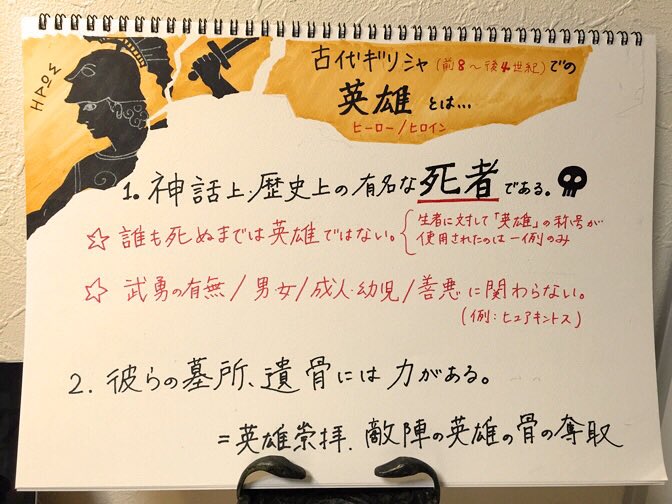 ΗΡΩΣ
古代ギリシャ(前8〜後4世紀)での
英雄とは…
ヒーロー/ヒロイン
1。神話上・歴史上の有名な死者である。
☆ 誰も死ぬまでは英雄ではない。
生者に対して「英雄」の称号が
使用されたのは一例のみ
☆ 武勇の有無/男女/成人・幼児/善悪に関わらない。
(例:ヒュアキントス)
2. 彼らの墓所、遺骨には力がある。
=英雄崇拝、敵陣の英雄の骨の奪取